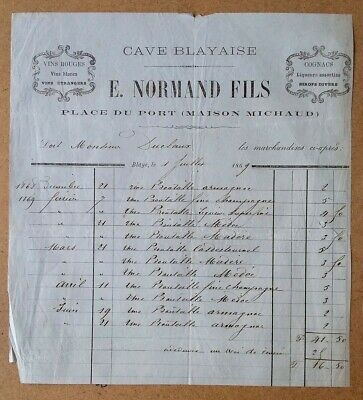 CAVE BLAYAISE
VINS ROUGES
Vins blancs
VINS ÉTRANGERS
COGNACS
Liqueurs assorties
SIROPS DIVERS
E. NORMAND FILS
PLACE DU PORT (MAISON MICHAUD)
Doit Monsieur Duclaux les marchandises ci-après:
Blaye, le 1 Juillet 1869
1868 Décembre 21 une Bouteille armagnac 2
1869 février 7 une Bouteille fine champagne 5
" " une Bouteille Liqueur 4
" " une Bouteille Médoc 3
" " une Bouteille Madère 3 50
Mars 21 une Bouteille 5
" " une Bouteille Madère 3 50
" " une Bouteille Médoc 3
avril 11 une Bouteille fine champagne 5
" " une Bouteille Médoc 3
Juin 19 une Bouteille armagnac 2
" 21 une Bouteille armagnac 2
F 41 50
25
F 16 50